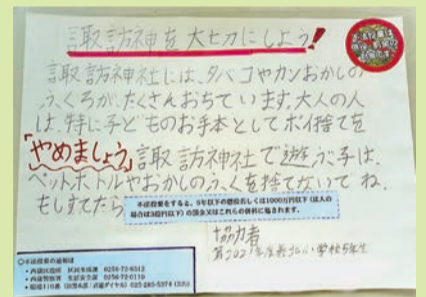 諏訪神を大切にしよう!
諏訪神社には、タバコやカンおかしの
ふくろが、たくさんおちています。大人の人
は、特に子どものお手本としてポイ捨てを
やめましょう 諏訪神社で遊ぶ子は、
ペットボトルやおかしのふくを捨てないでね。
もしすてたら
不法投棄をすると、5年以下の懲役若しくは1000万円以下(法人の
場合は3億円以下)の罰金又はこれらの併科に処されます。
協力者
小学校5年生
◎不法投棄の通報は
・西蒲区役所 区民生活課 0256-72-8312
・西蒲警察署 生活安全課 0256-72-0110